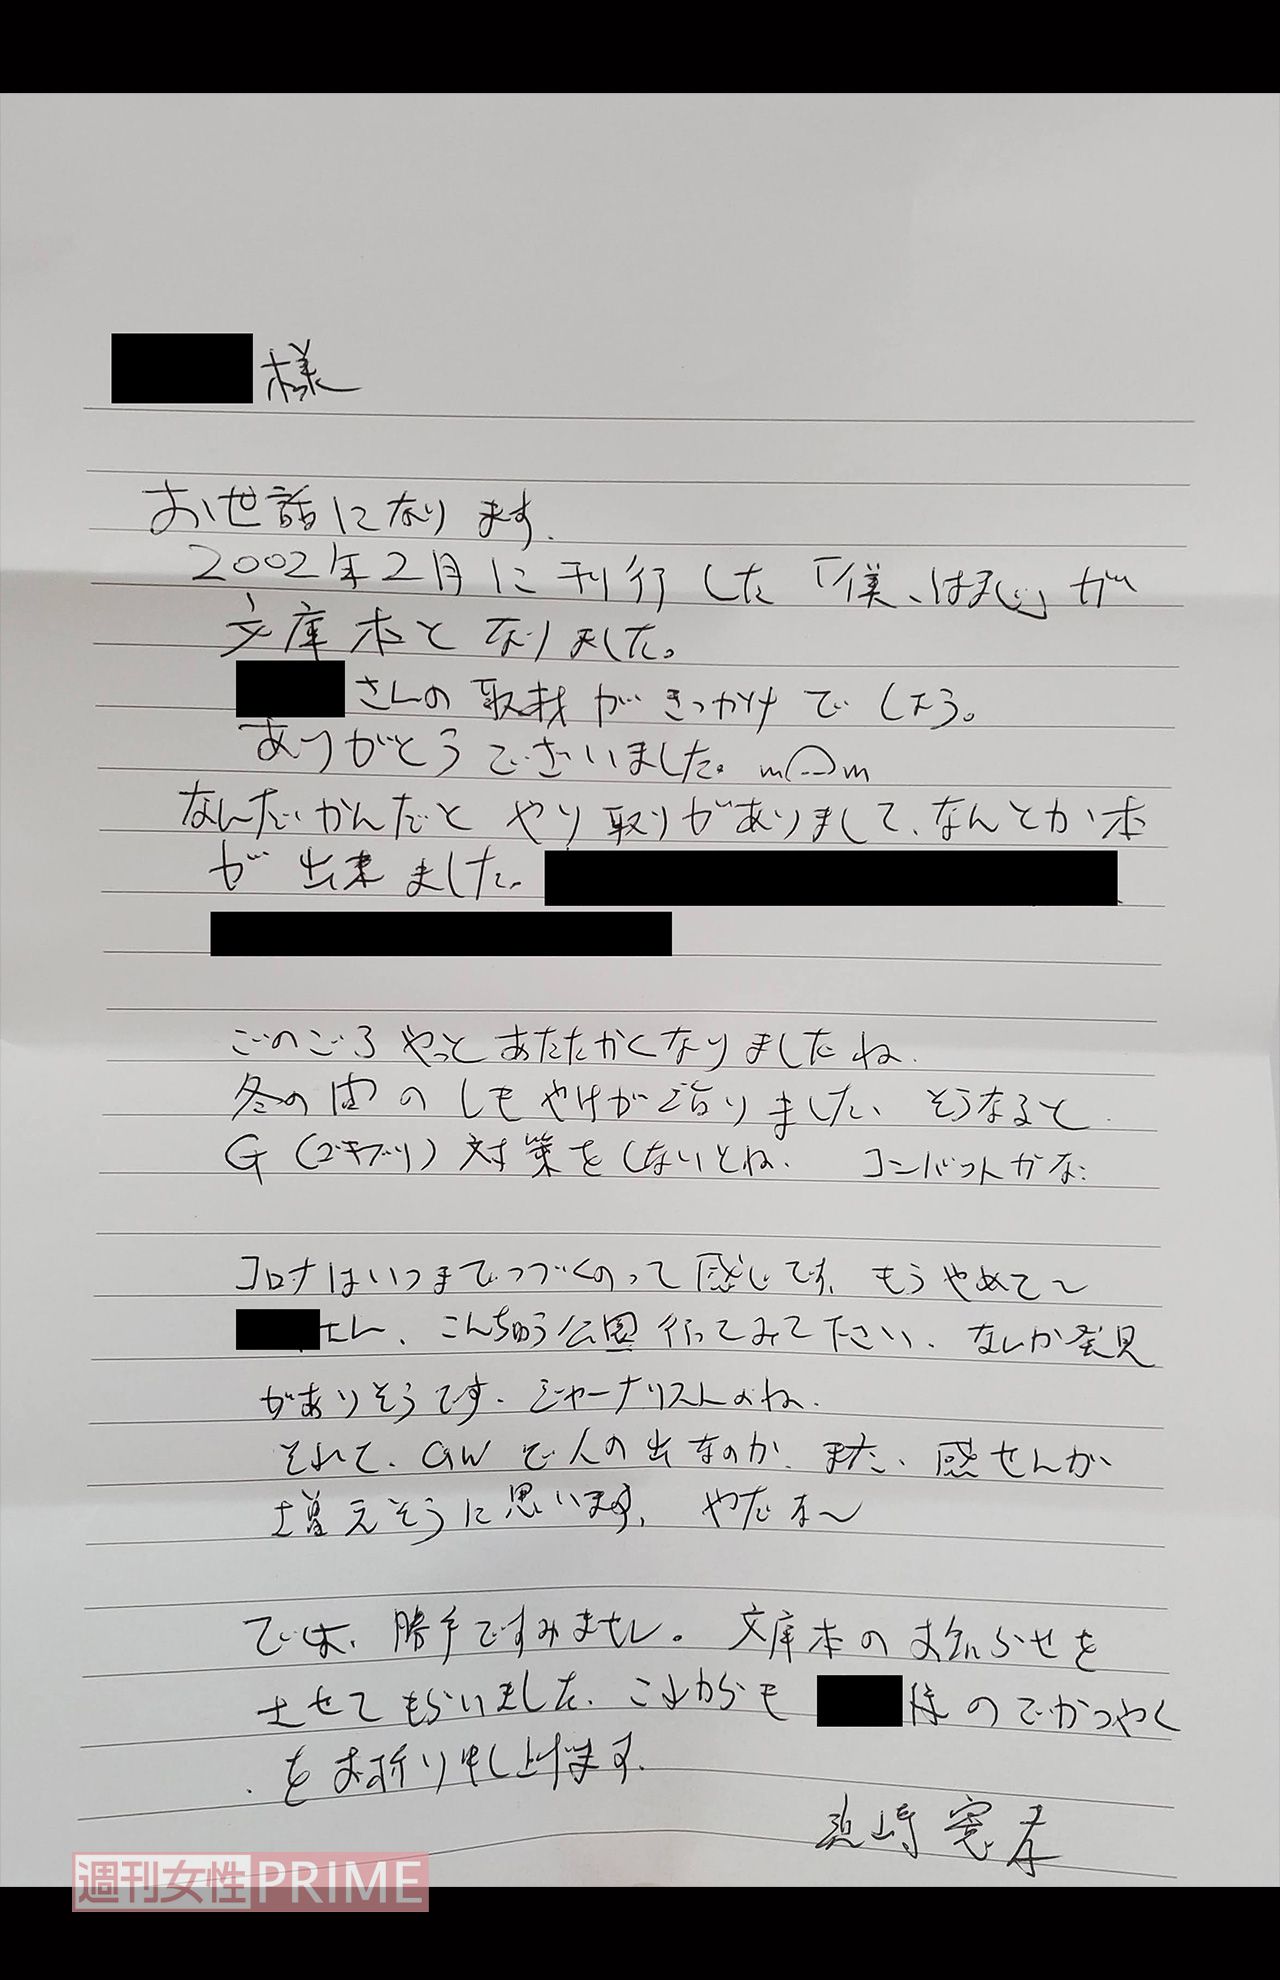 様
お世話になります。
2002年2月に刊行した「僕、はまじ」が
文庫本となりました。
さんの取材がきっかけでしょう。
ありがとうございました。m(__)m
なんだかんだとやり取りがありまして、なんとか本
が出来ました。
このごろやっとあたたかくなりましたね。
冬の間のしもやけが治りました。そうなると
G(ゴキブリ)対策をしないとね。 コンバットかな
コロナはいつまでつづくのって感じです。もうやめて〜
さん、こんちゅう公園行ってみて下さい。なんか発見
がありそうです。ジャーナリストよね。
それで、GWで人の出なのか、また、感せんが
増えそうに思います。 やだな〜
では、勝手ですみません。文庫本のお知らせを
させてもらいました。これからも 様のごかつやく
をお祈り申し上げます。
浜崎憲孝
週刊女性PRIME